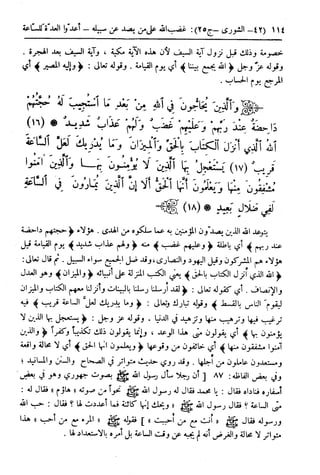 ١١٤ (٤٢- الشورى -ج٢٥): غضب الله على من يصد عن سبيله - أعدوا العدة للساعة
خصومة وذلك قبل نزول آية السيف لأن هذه الآية مكية ، وآية السيف بعد الهجرة .
وقوله عز وجل ﴿ الله يجمع بيننا ﴾ أي يوم القيامة . وقوله تعالى : ﴿ وإليه المصير ﴾ أي
المرجع يوم الحساب .
وَالَّذِينَ يُحَاجُّونَ فِي اللَّهِ مِنْ بَعْدِ مَا اسْتُجِيبَ لَهُ حُجَّتُهُمْ
دَاحِضَةٌ عِنْدَ رَبِّهِمْ وَعَلَيْهِمْ غَضَبٌ وَلَهُمْ عَذَابٌ شَدِيدٌ * (١٦)
اللَّهُ الَّذِي أَنْزَلَ الْكِتَابَ بِالْحَقِّ وَالْمِيزَانَ وَمَا يُدْرِيكَ لَعَلَّ السَّاعَةَ
قَرِيبٌ (١٧) يَسْتَعْجِلُ بِهَا الَّذِينَ لَا يُؤْمِنُونَ بِهَا وَالَّذِينَ آمَنُوا
مُشْفِقُونَ مِنْهَا وَيَعْلَمُونَ أَنَّهَا الْحَقُّ أَلَا إِنَّ الَّذِينَ يُمَارُونَ فِي السَّاعَةِ
لَفِي ضَلَالٍ بَعِيدٍ * (١٨)
يتوعد الله الذين يصدون المؤمنين به عما سلكوه من الهدى . هؤلاء ﴿ حجتهم داحضة
عند ربهم ﴾ أي باطلة ﴿ وعليهم غضب ﴾ منه ﴿ ولهم عذاب شديد ﴾ أي يوم القيامة قيل
هؤلاء هم المشركون وقيل اليهود والنصارى، وقد ضل الجميع سواء السبيل . ثم قال تعالى:
﴿ الله الذي أنزل الكتاب بالحق ﴾ يعني الكتب المنزلة على أنبيائه ﴿ والميزان ﴾ وهو العدل
والإنصاف . أي كقوله تعالى : ﴿ لقد أرسلنا رسلنا بالبينات وأنزلنا معهم الكتاب والميزان
ليقوم الناس بالقسط ﴾ وقوله تبارك وتعالى : ﴿ وما يدريك لعل الساعة قريب ﴾ فيه
ترغيب فيها وترهيب منها وتزهيد في الدنيا . وقوله عز وجل : ﴿ يستعجل بها الذين لا
يؤمنون بها ﴾ أي يقولون متى هذا الوعد ، وإنما يقولون ذلك تكذيباً وكفراً ﴿ والذين
آمنوا مشفقون منها ﴾ أي خائفون من وقوعها ﴿ ويعلمون أنها الحق ﴾ أي لا محالة واقعة
ومستعدون عاملون من أجلها . وقد روي حديث متواتر في الصحاح والسنن والمسانيد ؛
وفي بعض ألفاظه: ٨٧ [ أن رجلاً سأل رسول الله ﷺ بصوت جهوري وهو في بعض
أسفاره فناداه فقال : يا محمد فقال له رسول الله ﷺ نحواً من صوته « هاؤم » فقال له :
متى الساعة ؟ فقال رسول الله ﷺ « ويحك إنها كائنة فما أعددت لها ؟ فقال : حب الله
ورسوله فقال ﷺ « أنت مع من أحببت » ] فقوله ﷺ « المرء مع من أحب » هذا
متواتر لا محالة والغرض أنه لم يجبه عن وقت الساعة بل أمره بالاستعداد لها .